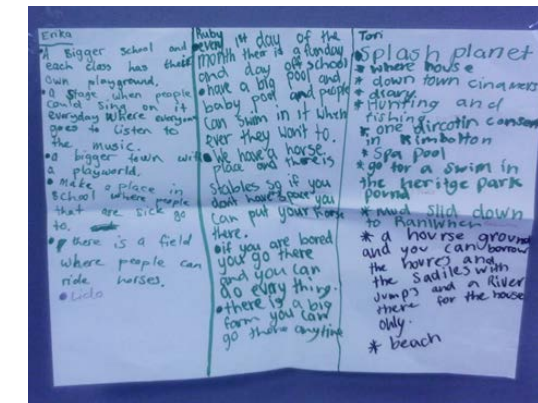 Erika
• A Bigger school and
each class has their
own playground.
• a stage when people
could sing on it
everyday where everyone
goes to listen to
the music.
• a bigger town with
a playworld.
• Make a place in
school where people
that are sick go
to.
• there is a field
where people can
ride horses.
• Lido
Ruby
• every 1st day of the
month ther is a funday
and day off school
• have a big pool and
baby pool and people
can swim in it when
ever they want to.
• We have a horse
place and there is
stables so if you
dont have space you
can put your horse
there.
• if you are bored
you go there
and you can
do every thing.
• there is a big
farm you can
go there anytime
Tori
Splash planet
* where house
* down town cinamers
* diary
* Hunting and
fishing
* one dircotin consert
in Kimbolton
* Spa pool
* go for a swim in
the heritge park
pound
* mud slid down
to
* a hourse ground
and you can borrow
the hovres and
the Sadiles with
Jumps and a River
there for the house
only.
* beach